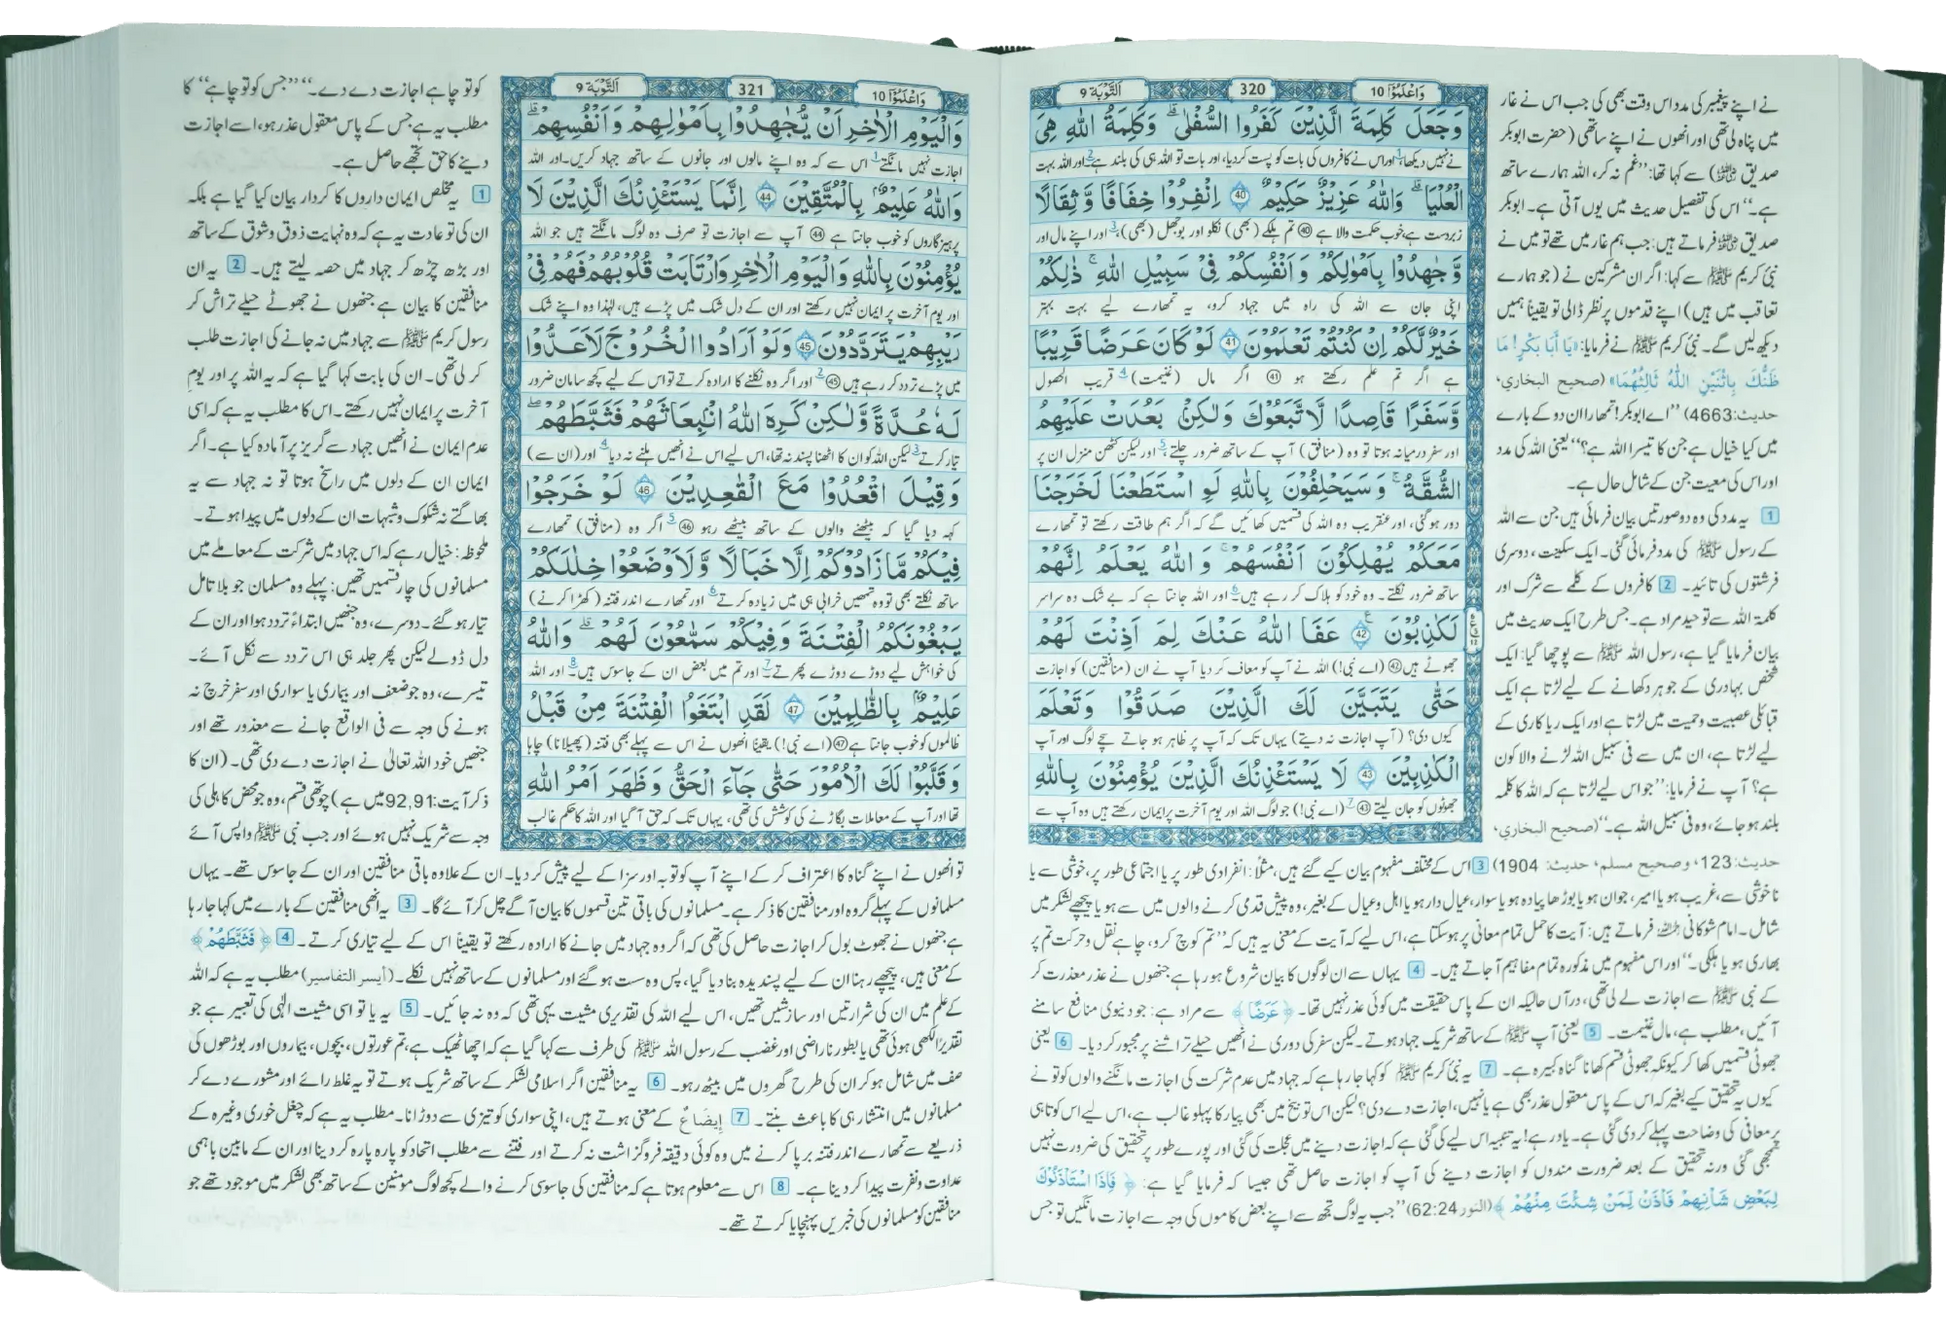 وَاعْلَمُوْٓا 10
320
اَلتَّوْبَة 9
وَجَعَلَ كَلِمَةَ الَّذِيْنَ كَفَرُوا السُّفْلٰى ؕ وَكَلِمَةُ اللّٰهِ هِيَ
نے نہیں دیکھا،1 اور اس نے کافروں کی بات کو پست کر دیا، اور بات تو اللہ ہی کی بلند ہے2 اور اللہ بہت
الْعُلْيَا ؕ وَاللّٰهُ عَزِيْزٌ حَكِيْمٌ 40 اِنْفِرُوْا خِفَافًا وَّثِقَالًا
زبردست ہے، خوب حکمت والا ہے 40 تم ہلکے (بھی) نکلو اور بوجھل (بھی)،3 اور اپنے مال اور
وَّجٰهِدُوْا بِاَمْوٰلِكُمْ وَاَنْفُسِكُمْ فِيْ سَبِيْلِ اللّٰهِ ؕ ذٰلِكُمْ
اپنی جان سے اللہ کی راہ میں جہاد کرو، یہ تمھارے لیے بہت بہتر
خَيْرٌ لَّكُمْ اِنْ كُنْتُمْ تَعْلَمُوْنَ 41 لَوْ كَانَ عَرَضًا قَرِيْبًا
ہے اگر تم علم رکھتے ہو 41 اگر مال (غنیمت)4 قریب الحصول
وَّسَفَرًا قَاصِدًا لَّاتَّبَعُوْكَ وَلٰكِنْۢ بَعُدَتْ عَلَيْهِمُ
اور سفر درمیانہ ہوتا تو وہ (منافق) آپ کے ساتھ ضرور چلتے5 اور لیکن کٹھن منزل ان پر
الشُّقَّةُ ؕ وَسَيَحْلِفُوْنَ بِاللّٰهِ لَوِ اسْتَطَعْنَا لَخَرَجْنَا
دور ہوگئی، اور عنقریب وہ اللہ کی قسمیں کھائیں گے کہ اگر ہم طاقت رکھتے تو تمھارے
مَعَكُمْ يُهْلِكُوْنَ اَنْفُسَهُمْ ۚ وَاللّٰهُ يَعْلَمُ اِنَّهُمْ
ساتھ ضرور نکلتے۔ وہ خود کو ہلاک کر رہے ہیں6 اور اللہ جانتا ہے کہ بے شک وہ سراسر
لَكٰذِبُوْنَ 42 عَفَا اللّٰهُ عَنْكَ لِمَ اَذِنْتَ لَهُمْ
جھوٹے ہیں 42 (اے نبی!) اللہ نے آپ کو معاف کر دیا آپ نے ان (منافقین) کو اجازت
حَتّٰى يَتَبَيَّنَ لَكَ الَّذِيْنَ صَدَقُوْا وَتَعْلَمَ
کیوں دی؟ (آپ اجازت نہ دیتے) یہاں تک کہ آپ پر ظاہر ہو جاتے سچے لوگ اور آپ
الْكٰذِبِيْنَ 43 لَا يَسْتَـْٔذِنُكَ الَّذِيْنَ يُؤْمِنُوْنَ بِاللّٰهِ
جھوٹوں کو جان لیتے 43 7 (اے نبی!) جو لوگ اللہ اور یوم آخرت پر ایمان رکھتے ہیں وہ آپ سے
نے اپنے پیغمبر کی مدد اس وقت بھی کی جب اس نے غار
میں پناہ لی تھی اور انھوں نے اپنے ساتھی (حضرت ابوبکر
صدیق ﷜) سے کہا تھا: ”غم نہ کر، اللہ ہمارے ساتھ
ہے۔“ اس کی تفصیل حدیث میں یوں آتی ہے۔ ابوبکر
صدیق ﷜ فرماتے ہیں: جب ہم غار میں تھے تو میں نے
نبی کریم ﷺ سے کہا: اگر ان مشرکین نے (جو ہمارے
تعاقب میں ہیں) اپنے قدموں پر نظر ڈالی تو یقیناً ہمیں
دیکھ لیں گے۔ نبی کریم ﷺ نے فرمایا: «يَا أَبَا بَكْرٍ! مَا
ظَنُّكَ بِاثْنَيْنِ اللّٰهُ ثَالِثُهُمَا» (صحيح البخاري،
حدیث:4663) ”اے ابوبکر! تمھارا ان دو کے بارے
میں کیا خیال ہے جن کا تیسرا اللہ ہے؟“ یعنی اللہ کی مدد
اور اس کی معیت جن کے شامل حال ہے۔
1 یہ مدد کی وہ دو صورتیں بیان فرمائی ہیں جن سے اللہ
کے رسول ﷺ کی مدد فرمائی گئی۔ ایک سکینت، دوسری
فرشتوں کی تائید۔ 2 کافروں کے کلمے سے شرک اور
کلمۃ اللہ سے توحید مراد ہے۔ جس طرح ایک حدیث میں
بیان فرمایا گیا ہے، رسول اللہ ﷺ سے پوچھا گیا: ایک
شخص بہادری کے جوہر دکھانے کے لیے لڑتا ہے ایک
قبائلی عصبیت و حمیت میں لڑتا ہے اور ایک ریاکاری کے
لیے لڑتا ہے، ان میں سے فی سبیل اللہ لڑنے والا کون
ہے؟ آپ نے فرمایا: ”جو اس لیے لڑتا ہے کہ اللہ کا کلمہ
بلند ہو جائے، وہ فی سبیل اللہ ہے۔“ (صحيح البخاري،
حديث:123، وصحيح مسلم، حديث: 1904) 3 اس کے مختلف مفہوم بیان کیے گئے ہیں، مثلاً: انفرادی طور پر یا اجتماعی طور پر، خوشی سے یا
ناخوشی سے، غریب ہو یا امیر، جوان ہو یا بوڑھا پیادہ ہو یا سوار، عیال دار ہو یا اہل و عیال کے بغیر، وہ پیش قدمی کرنے والوں میں سے ہو یا پیچھے لشکر میں
شامل۔ امام شوکانی ﷫ فرماتے ہیں: آیت کا حمل تمام معانی پر ہوسکتا ہے، اس لیے کہ آیت کے معنی یہ ہیں کہ ”تم کوچ کرو، چاہے نقل و حرکت تم پر
بھاری ہو یا ہلکی۔“ اور اس مفہوم میں مذکورہ تمام مفاہیم آجاتے ہیں۔ 4 یہاں سے ان لوگوں کا بیان شروع ہو رہا ہے جنھوں نے عذر معذرت کر
کے نبی ﷺ سے اجازت لے لی تھی، درآں حالیکہ ان کے پاس حقیقت میں کوئی عذر نہیں تھا۔ ﴿عَرَضًا﴾ سے مراد ہے: جو دنیوی منافع سامنے
آئیں، مطلب ہے، مال غنیمت۔ 5 یعنی آپ ﷺ کے ساتھ شریک جہاد ہوتے۔ لیکن سفر کی دوری نے انھیں حیلے تراشنے پر مجبور کر دیا۔ 6 یعنی
جھوٹی قسمیں کھا کر کیونکہ جھوٹی قسم کھانا گناہ کبیرہ ہے۔ 7 یہ نبی کریم ﷺ کو کہا جا رہا ہے کہ جہاد میں عدم شرکت کی اجازت مانگنے والوں کو تو نے
کیوں یہ تحقیق کیے بغیر کہ اس کے پاس معقول عذر بھی ہے یا نہیں، اجازت دے دی؟ لیکن اس توبیخ میں بھی پیار کا پہلو غالب ہے، اس لیے اس کوتاہی
پر معافی کی وضاحت پہلے کر دی گئی ہے۔ یاد رہے! یہ تنبیہ اس لیے کی گئی ہے کہ اجازت دینے میں عجلت کی گئی اور پورے طور پر تحقیق کی ضرورت نہیں
سمجھی گئی ورنہ تحقیق کے بعد ضرورت مندوں کو اجازت دینے کی آپ کو اجازت حاصل تھی جیسا کہ فرمایا گیا ہے: ﴿فَاِذَا اسْتَاْذَنُوْكَ
لِبَعْضِ شَاْنِهِمْ فَاْذَنْ لِّمَنْ شِئْتَ مِنْهُمْ﴾ (النور 62:24) ”جب یہ لوگ تجھ سے اپنے بعض کاموں کی وجہ سے اجازت مانگیں تو جس
وَاعْلَمُوْٓا 10
321
اَلتَّوْبَة 9
وَالْيَوْمِ الْاٰخِرِ اَنْ يُّجٰهِدُوْا بِاَمْوٰلِهِمْ وَاَنْفُسِهِمْ ؕ
اجازت نہیں مانگتے1 اس سے کہ وہ اپنے مالوں اور جانوں کے ساتھ جہاد کریں۔ اور اللہ
وَاللّٰهُ عَلِيْمٌۢ بِالْمُتَّقِيْنَ 44 اِنَّمَا يَسْتَـْٔذِنُكَ الَّذِيْنَ لَا
پرہیزگاروں کو خوب جانتا ہے 44 آپ سے اجازت تو صرف وہ لوگ مانگتے ہیں جو اللہ
يُؤْمِنُوْنَ بِاللّٰهِ وَالْيَوْمِ الْاٰخِرِ وَارْتَابَتْ قُلُوْبُهُمْ فَهُمْ فِيْ
اور یوم آخرت پر ایمان نہیں رکھتے اور ان کے دل شک میں پڑے ہیں، لہٰذا وہ اپنے شک
رَيْبِهِمْ يَتَرَدَّدُوْنَ 45 وَلَوْ اَرَادُوا الْخُرُوْجَ لَاَعَدُّوْا
میں پڑے تردد کر رہے ہیں 45 2 اور اگر وہ نکلنے کا ارادہ کرتے تو اس کے لیے کچھ سامان ضرور
لَهٗ عُدَّةً وَّلٰكِنْ كَرِهَ اللّٰهُ انْۢبِعَاثَهُمْ فَثَبَّطَهُمْ
تیار کرتے3 لیکن اللہ کو ان کا اٹھنا پسند نہ تھا، اس لیے اس نے انھیں ہلنے نہ دیا4 اور (ان سے)
وَقِيْلَ اقْعُدُوْا مَعَ الْقٰعِدِيْنَ 46 لَوْ خَرَجُوْا
کہہ دیا گیا کہ بیٹھنے والوں کے ساتھ بیٹھے رہو 46 5 اگر وہ (منافق) تمھارے
فِيْكُمْ مَّا زَادُوْكُمْ اِلَّا خَبَالًا وَّلَاَوْضَعُوْا خِلٰلَكُمْ
ساتھ نکلتے بھی تو وہ تمھیں خرابی ہی میں زیادہ کرتے6 اور تمھارے اندر فتنہ (کھڑا کرنے)
يَبْغُوْنَكُمُ الْفِتْنَةَ وَفِيْكُمْ سَمّٰعُوْنَ لَهُمْ ؕ وَاللّٰهُ
کی خواہش لیے دوڑے دوڑے پھرتے7 اور تم میں بعض ان کے جاسوس ہیں8 اور اللہ
عَلِيْمٌۢ بِالظّٰلِمِيْنَ 47 لَقَدِ ابْتَغَوُا الْفِتْنَةَ مِنْ قَبْلُ
ظالموں کو خوب جانتا ہے 47 (اے نبی!) یقیناً انھوں نے اس سے پہلے بھی فتنہ (پھیلانا) چاہا
وَقَلَّبُوْا لَكَ الْاُمُوْرَ حَتّٰى جَآءَ الْحَقُّ وَظَهَرَ اَمْرُ اللّٰهِ
تھا اور آپ کے معاملات بگاڑنے کی کوشش کی تھی، یہاں تک کہ حق آگیا اور اللہ کا حکم غالب
کو تو چاہے اجازت دے دے۔“ ”جس کو تو چاہے“ کا
مطلب یہ ہے جس کے پاس معقول عذر ہو، اسے اجازت
دینے کا حق تجھے حاصل ہے۔
1 یہ مخلص ایمان داروں کا کردار بیان کیا گیا ہے بلکہ
ان کی تو عادت یہ ہے کہ وہ نہایت ذوق و شوق کے ساتھ
اور بڑھ چڑھ کر جہاد میں حصہ لیتے ہیں۔ 2 یہ ان
منافقین کا بیان ہے جنھوں نے جھوٹے حیلے تراش کر
رسول کریم ﷺ سے جہاد میں نہ جانے کی اجازت طلب
کر لی تھی۔ ان کی بابت کہا گیا ہے کہ یہ اللہ پر اور یومِ
آخرت پر ایمان نہیں رکھتے۔ اس کا مطلب یہ ہے کہ اسی
عدم ایمان نے انھیں جہاد سے گریز پر آمادہ کیا ہے۔ اگر
ایمان ان کے دلوں میں راسخ ہوتا تو نہ جہاد سے یہ
بھاگتے نہ شکوک و شبہات ان کے دلوں میں پیدا ہوتے۔
ملحوظہ: خیال رہے کہ اس جہاد میں شرکت کے معاملے میں
مسلمانوں کی چار قسمیں تھیں: پہلے وہ مسلمان جو بلا تامل
تیار ہوگئے۔ دوسرے، وہ جنھیں ابتداءً تردد ہوا اور ان کے
دل ڈولے لیکن پھر جلد ہی اس تردد سے نکل آئے۔
تیسرے، وہ جو ضعف اور بیماری یا سواری اور سفر خرچ نہ
ہونے کی وجہ سے فی الواقع جانے سے معذور تھے اور
جنھیں خود اللہ تعالیٰ نے اجازت دے دی تھی۔ (ان کا
ذکر آیت:92,91 میں ہے) چوتھی قسم، وہ جو محض کاہلی کی
وجہ سے شریک نہیں ہوئے اور جب نبی ﷺ واپس آئے
تو انھوں نے اپنے گناہ کا اعتراف کر کے اپنے آپ کو توبہ اور سزا کے لیے پیش کر دیا۔ ان کے علاوہ باقی منافقین اور ان کے جاسوس تھے۔ یہاں
مسلمانوں کے پہلے گروہ اور منافقین کا ذکر ہے۔ مسلمانوں کی باقی تین قسموں کا بیان آگے چل کر آئے گا۔ 3 یہ انھی منافقین کے بارے میں کہا جا رہا
ہے جنھوں نے جھوٹ بول کر اجازت حاصل کی تھی کہ اگر وہ جہاد میں جانے کا ارادہ رکھتے تو یقیناً اس کے لیے تیاری کرتے۔ 4 ﴿فَثَبَّطَهُمْ﴾
کے معنی ہیں، پیچھے رہنا ان کے لیے پسندیدہ بنا دیا گیا، پس وہ سست ہوگئے اور مسلمانوں کے ساتھ نہیں نکلے۔ (أيسر التفاسير) مطلب یہ ہے کہ اللہ
کے علم میں ان کی شرارتیں اور سازشیں تھیں، اس لیے اللہ کی تقدیری مشیت یہی تھی کہ وہ نہ جائیں۔ 5 یہ یا تو اسی مشیت الٰہی کی تعبیر ہے جو
تقدیراً لکھی ہوئی تھی یا بطور ناراضی اور غضب کے رسول اللہ ﷺ کی طرف سے کہا گیا ہے کہ اچھا ٹھیک ہے، تم عورتوں، بچوں، بیماروں اور بوڑھوں کی
صف میں شامل ہو کر ان کی طرح گھروں میں بیٹھ رہو۔ 6 یہ منافقین اگر اسلامی لشکر کے ساتھ شریک ہوتے تو یہ غلط رائے اور مشورے دے کر
مسلمانوں میں انتشار ہی کا باعث بنتے۔ 7 إِيضَاعٌ کے معنی ہوتے ہیں، اپنی سواری کو تیزی سے دوڑانا۔ مطلب یہ ہے کہ چغل خوری وغیرہ کے
ذریعے سے تمھارے اندر فتنہ برپا کرنے میں وہ کوئی دقیقہ فروگزاشت نہ کرتے اور فتنے سے مطلب اتحاد کو پارہ پارہ کر دینا اور ان کے مابین باہمی
عداوت و نفرت پیدا کر دینا ہے۔ 8 اس سے معلوم ہوتا ہے کہ منافقین کی جاسوسی کرنے والے کچھ لوگ مومنین کے ساتھ بھی لشکر میں موجود تھے جو
منافقین کو مسلمانوں کی خبریں پہنچایا کرتے تھے۔